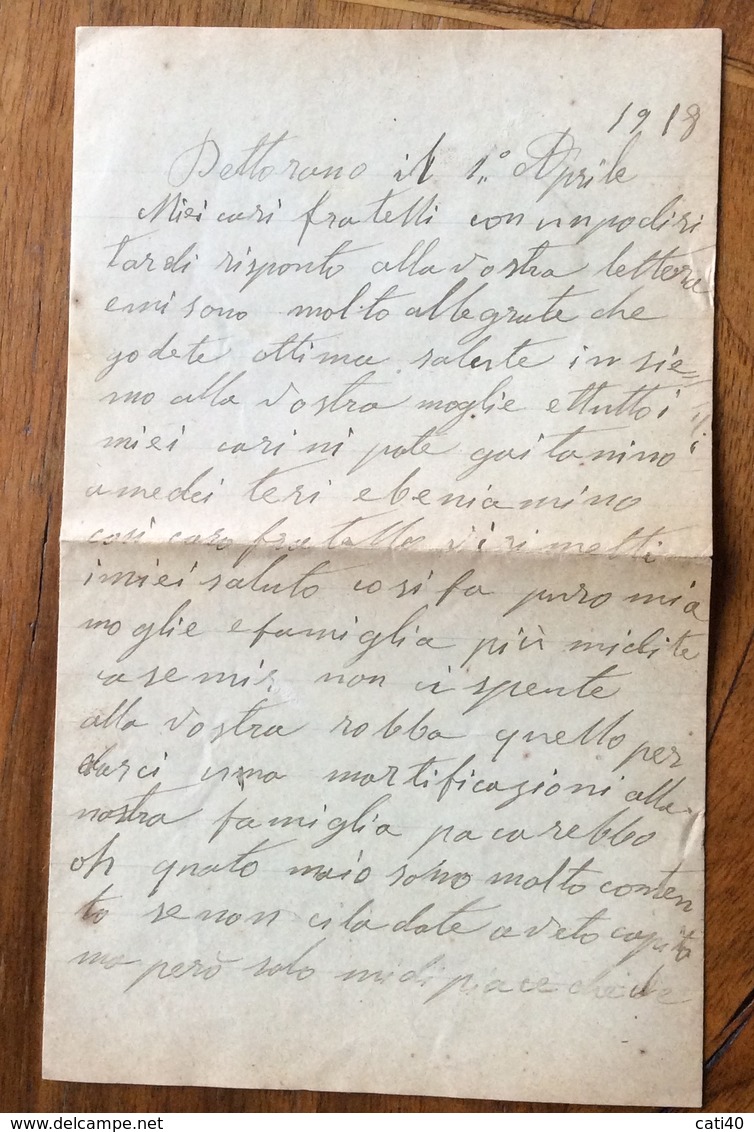 1918
Pettorano il 1.° Aprile
Miei cari fratelli con unpodiri
tardi risponto alla vostra lettera
emi sono molto allegrate che
godete ottima salute in sie
mo alla vostra moglie ettutto i
miei cari ni pote gaitanino
amedei teri ebeniamino
cosi caro fratello vi rimetti
imiei saluto cosi fa puro mia
moglie efamiglia più midite
casemi non ci spente
alla vostra robba quello per
darci una mortificazioni alla
nostra famiglia pacarebbo
oh quato maio sono molto conten
to se non ci la date aveto capito
ma però solo midi piace che
cati40